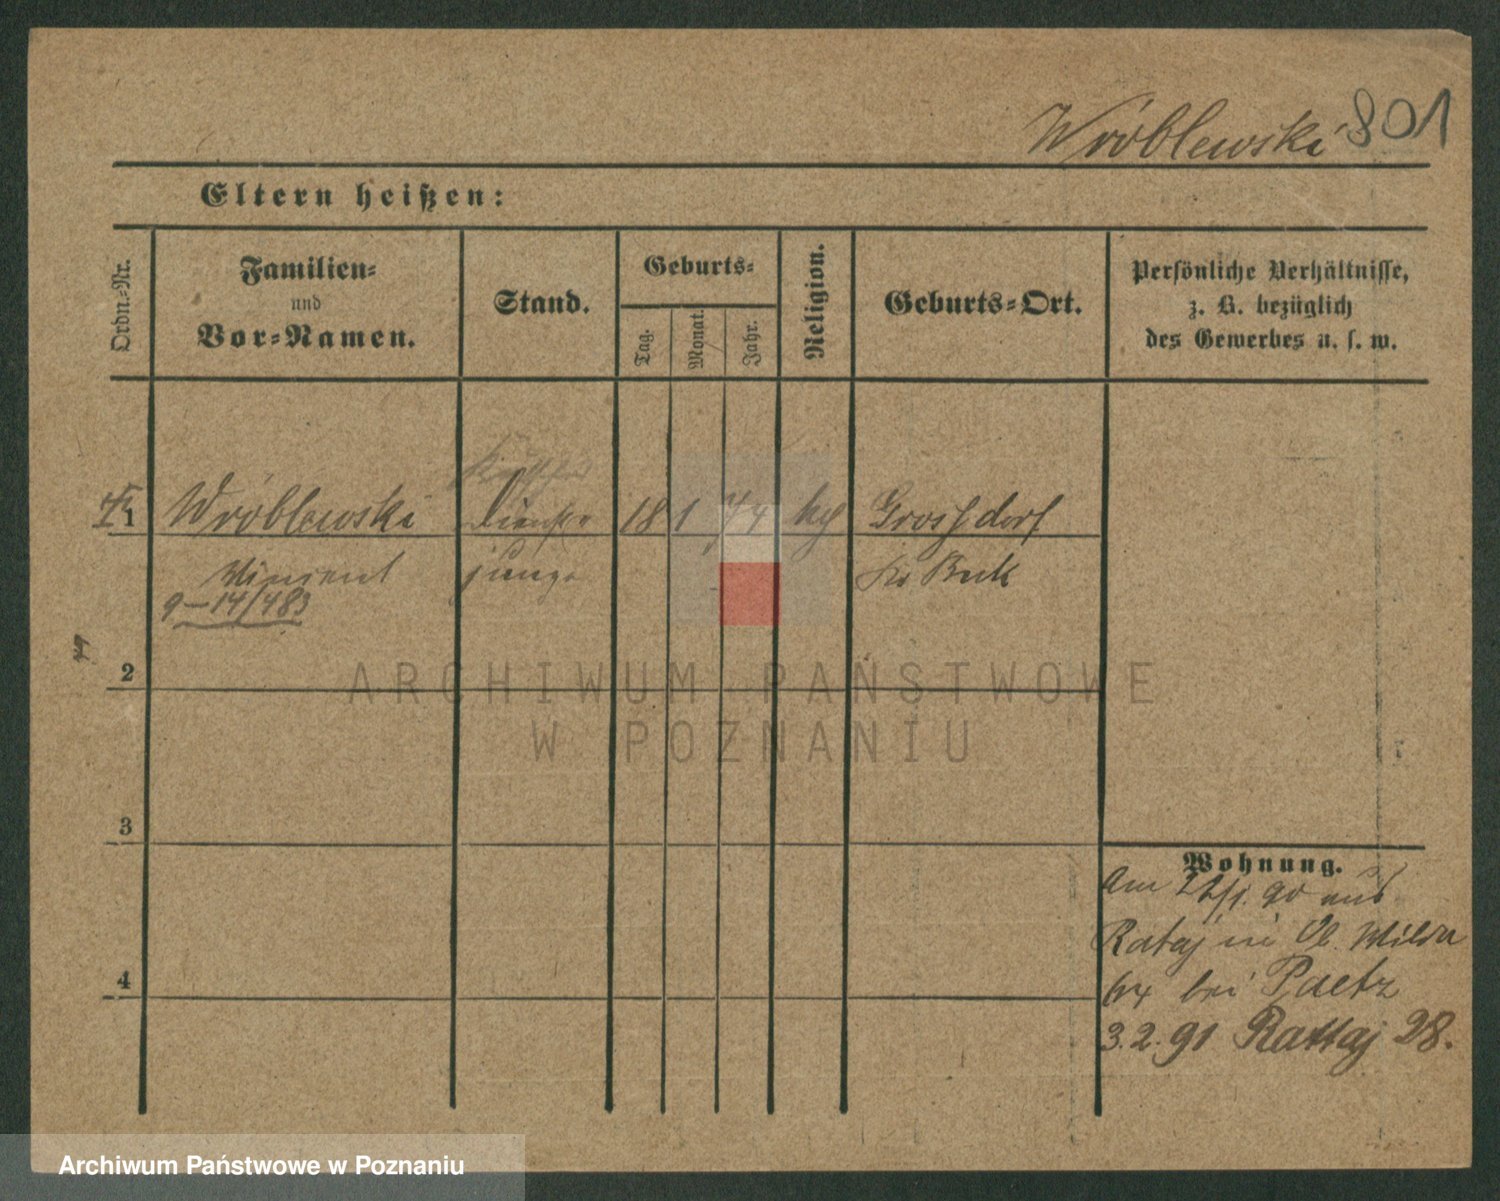 Wróblewski 801
Eltern heißen:
Ordn.-Nr.
Familien-
und
Vor-Namen.
Stand.
Geburts-
Tag.
Monat.
Jahr.
Religion.
Geburts-Ort.
Persönliche Verhältnisse,
z. B. bezüglich
des Gewerbes u. s. w.
1 Wróblewski Dienst- 18 1 74 kth Grossdorf
Vincent junge Krs Buk
9-14/483
2
ARCHIWUM PAŃSTWOWE
W POZNANIU
3
4
Wohnung.
Am 90 aus
Rataj in Ob. Wilda
64 bei Paetz
3.2.91 Rattaj 28.
Archiwum Państwowe w Poznaniu